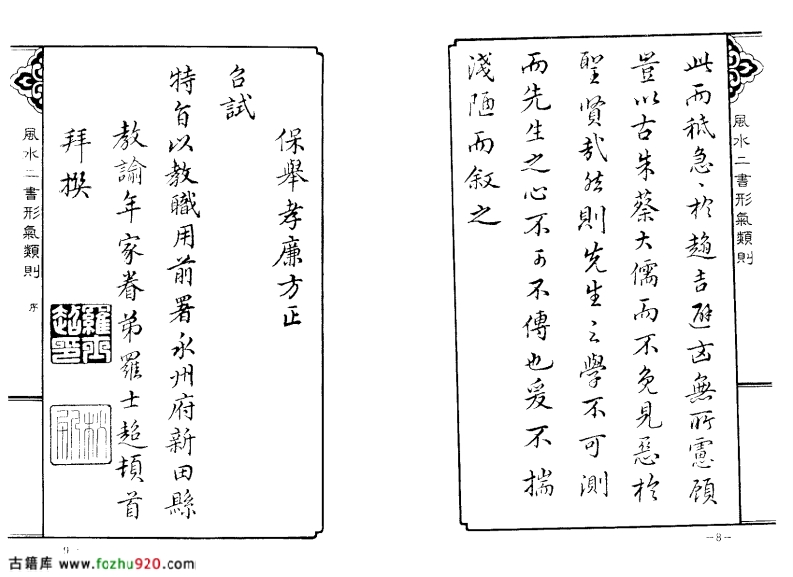 風水二書形氣類則
此而秪急、於趨吉避凶無所慮顧
豈以古朱蔡大儒而不免見惡於
聖賢哉然則先生之學不可測
而先生之心不可不傳也爰不揣
淺陋而叙之
-8-
保舉孝廉方正
召試
特旨以教職用前署永州府新田縣
教諭年家眷弟羅士超頓首
拜撰
羅士超印
風水二書形氣類則
序
9
古籍库 www.fozhu920.com